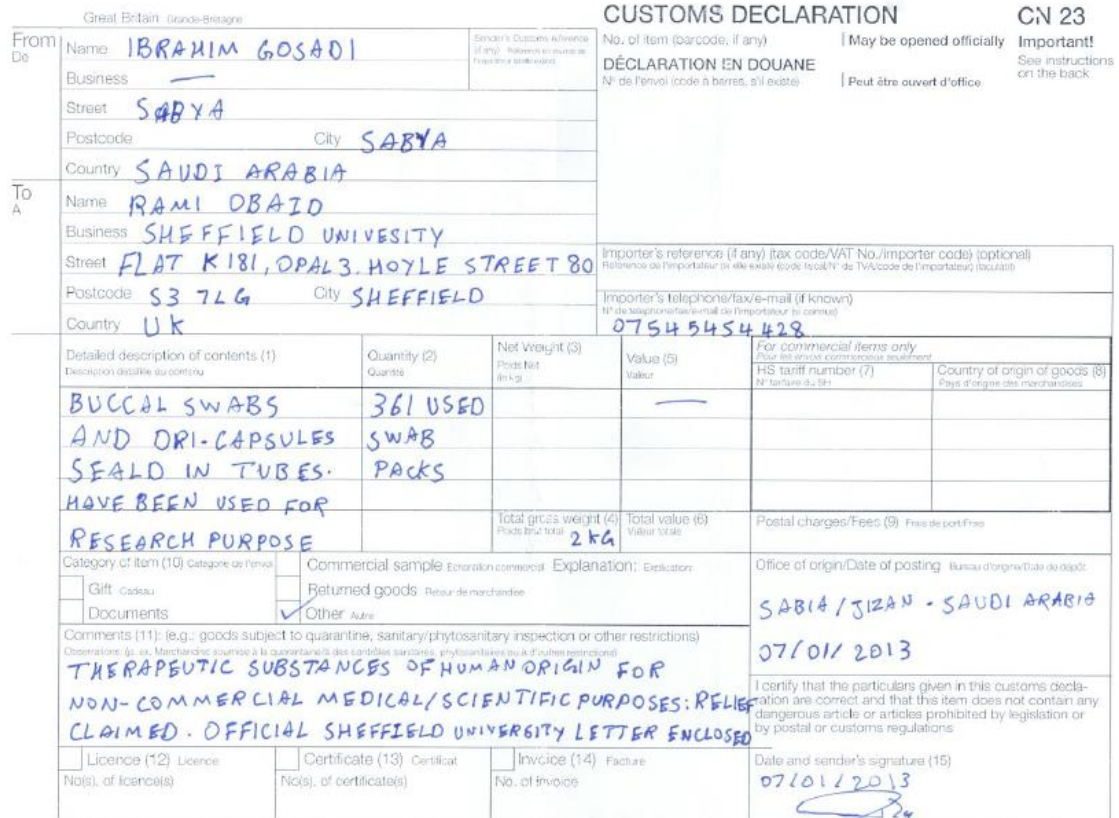 Great Britain Grande-Bretagne
CUSTOMS DECLARATION
CN 23
From
De
Name IBRAHIM GOSADI
Sender's Customs reference
(if any)
No. of item (barcode, if any)
May be opened officially
Important!
See instructions
on the back
DÉCLARATION EN DOUANE
N° de l'envoi (code à barres, s'il existe)
Peut être ouvert d'office
Business —
Street SABYA
Postcode City SABYA
Country SAUDI ARABIA
To
A
Name RAMI OBAID
Business SHEFFIELD UNIVESITY
Street FLAT K181, OPAL 3. HOYLE STREET 80
Postcode S3 7LG City SHEFFIELD
Country UK
Importer's reference (if any) (tax code/VAT No./importer code) (optional)
Référence de l'importateur (si elle existe) (code fiscal/N° de TVA/code de l'importateur) (facultatif)
Importer's telephone/fax/e-mail (if known)
N° de téléphone/fax/e-mail de l'importateur (si connus)
07545454428
Detailed description of contents (1)
Description détaillée du contenu
Quantity (2)
Quantité
Net Weight (3)
Poids Net
(in kg)
Value (5)
Valeur
For commercial items only
Pour les envois commerciaux seulement
HS tariff number (7)
N° tarifaire du SH
Country of origin of goods (8)
Pays d'origine des marchandises
BUCCAL SWABS 361 USED —
AND ORI-CAPSULES SWAB
SEALD IN TUBES. PACKS
HAVE BEEN USED FOR
RESEARCH PURPOSE
Total gross weight (4)
Poids brut total 2 KG
Total value (6)
Valeur totale
Postal charges/Fees (9) Frais de port/Frais
Category of item (10) Catégorie de l'envoi
Commercial sample Echantillon commercial Explanation: Explication
Gift Cadeau
Returned goods Retour de marchandise
Documents
Other Autre
Office of origin/Date of posting Bureau d'origine/Date de dépôt
SABIA / JIZAN - SAUDI ARABIA
07/01/2013
Comments (11): (e.g.: goods subject to quarantine, sanitary/phytosanitary inspection or other restrictions)
Observations: (p. ex. Marchandise soumise à la quarantaine/à des contrôles sanitaires, phytosanitaires ou à d'autres restrictions)
THERAPEUTIC SUBSTANCES OF HUMAN ORIGIN FOR
NON-COMMERCIAL MEDICAL/SCIENTIFIC PURPOSES: RELIEF
CLAIMED. OFFICIAL SHEFFIELD UNIVERSITY LETTER ENCLOSED
I certify that the particulars given in this customs decla-
ration are correct and that this item does not contain any
dangerous article or articles prohibited by legislation or
by postal or customs regulations
Licence (12) Licence
No(s). of licence(s)
Certificate (13) Certificat
No(s). of certificate(s)
Invoice (14) Facture
No. of invoice
Date and sender's signature (15)
07/01/2013